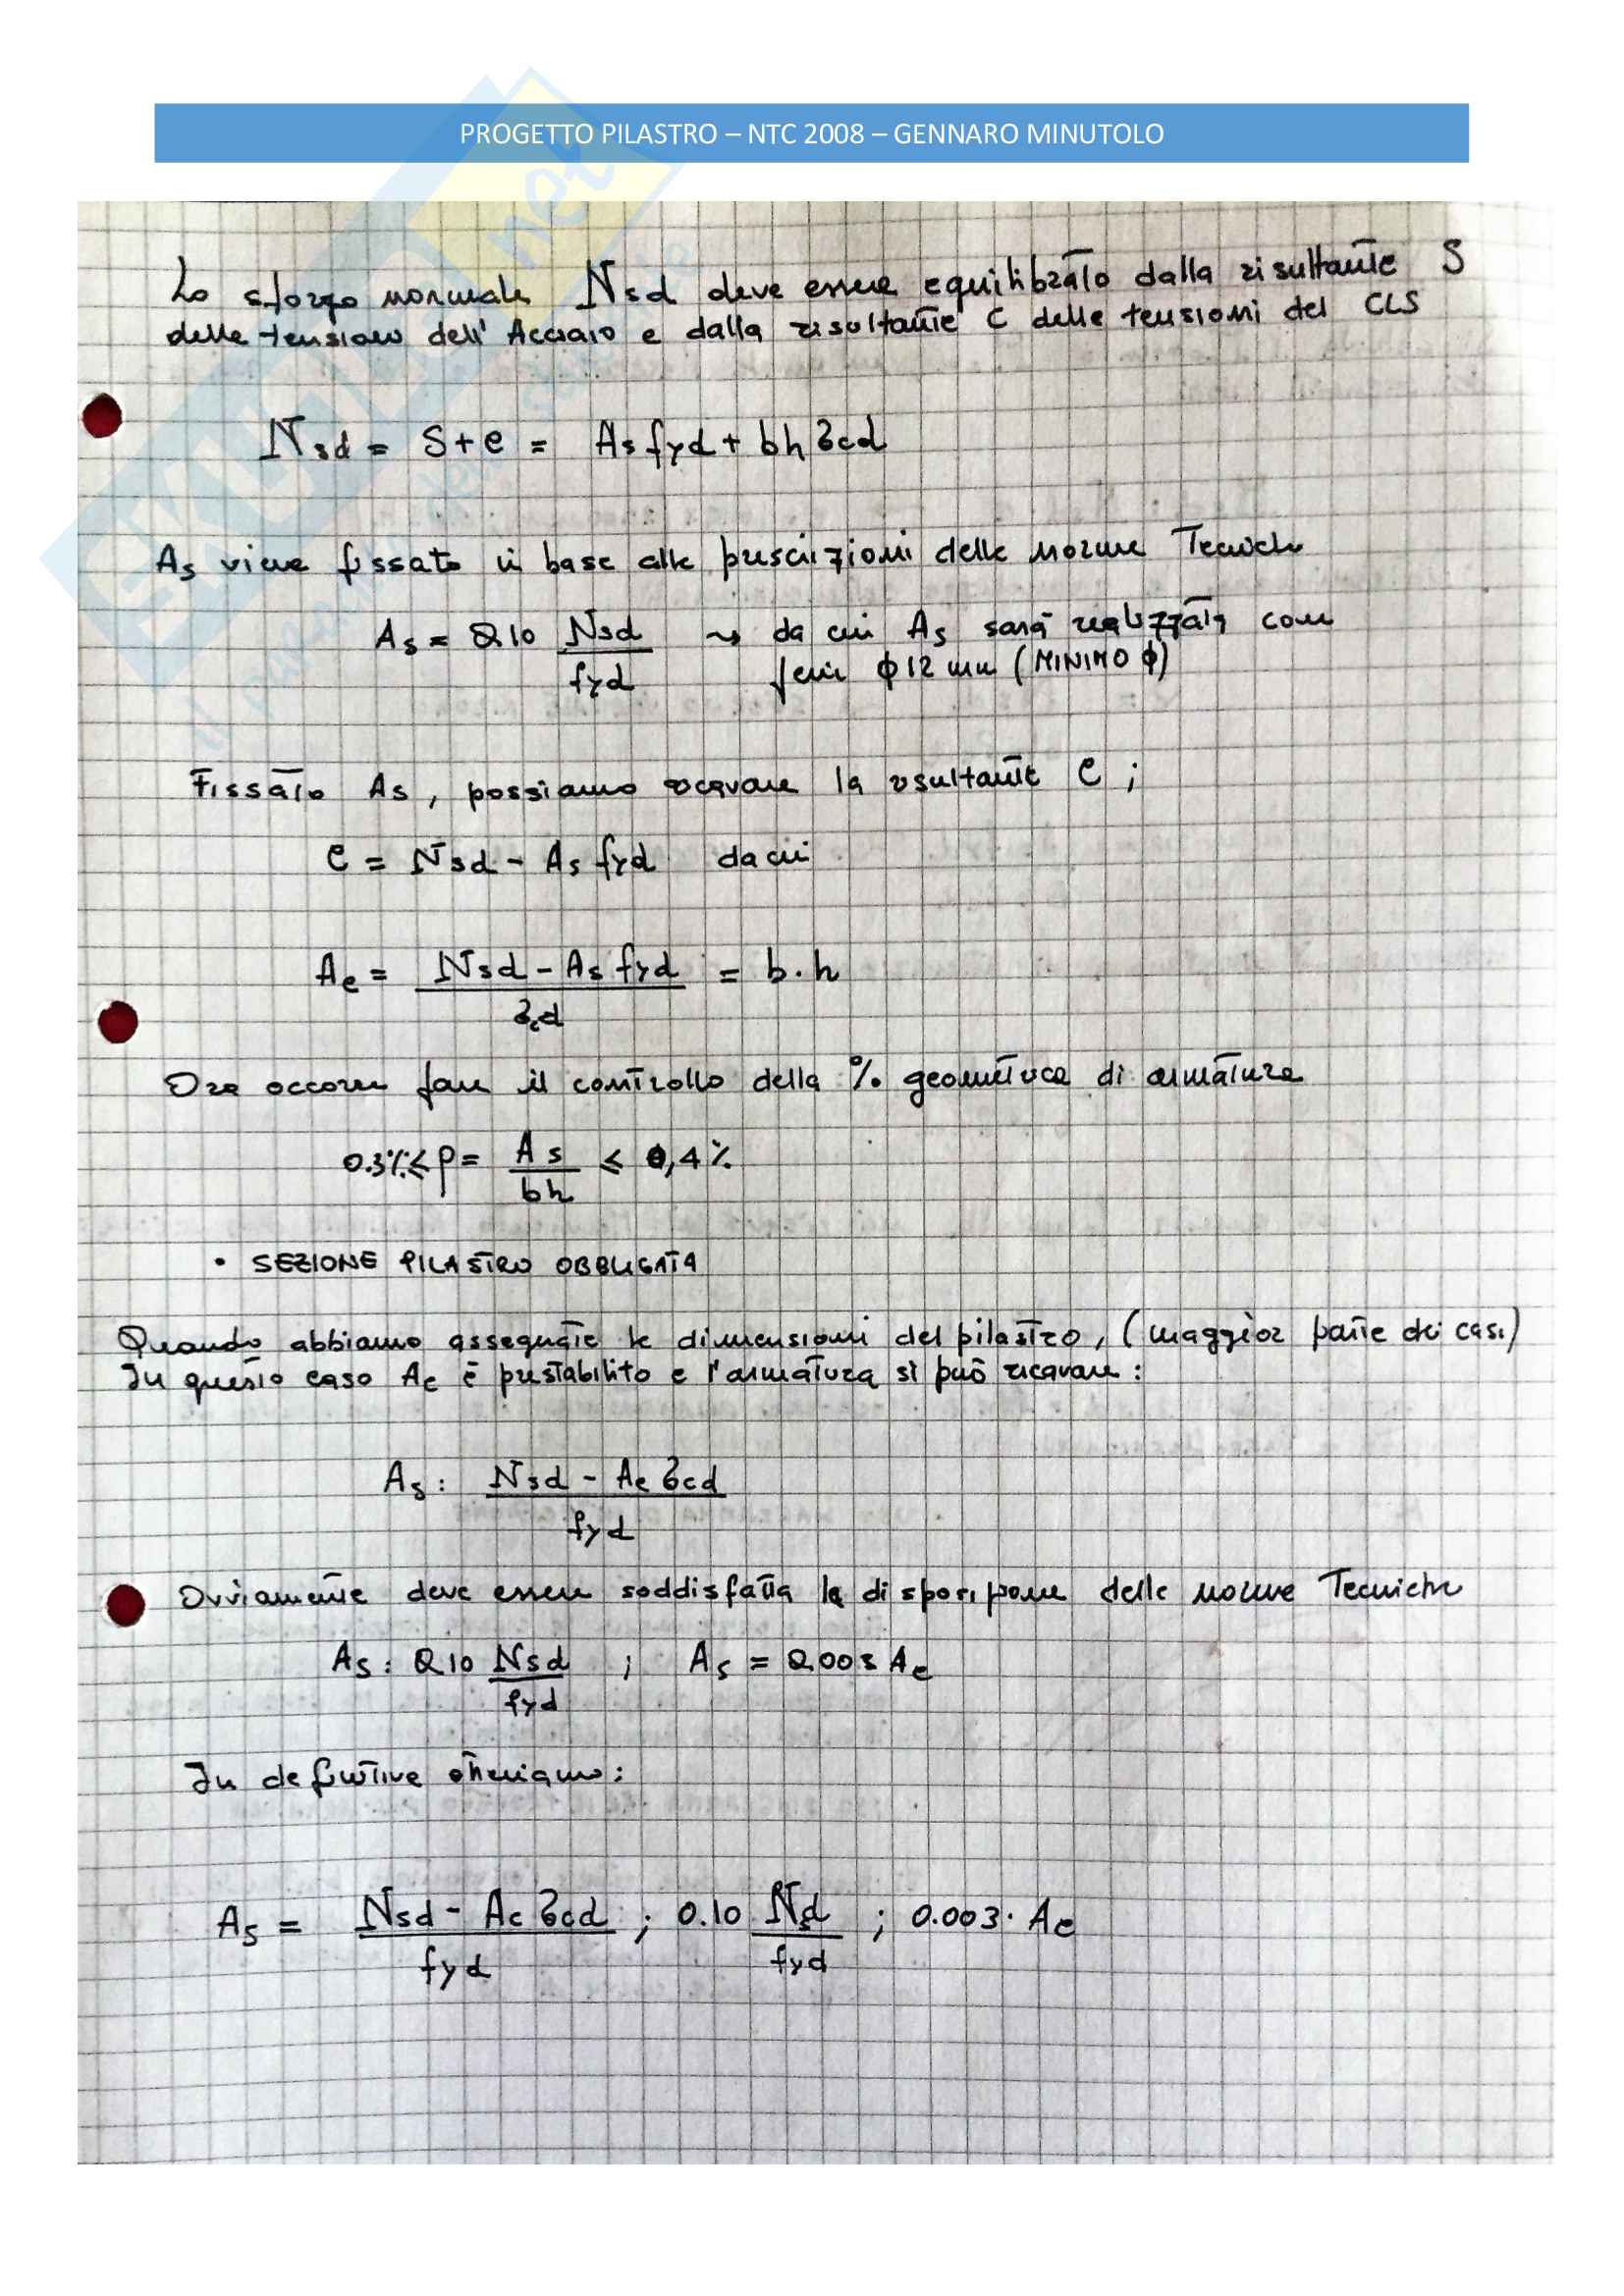 PROGETTO PILASTRO – NTC 2008 – GENNARO MINUTOLO
Lo sforzo normale Nsd deve essere equilibrato dalla risultante S
delle tensioni dell' Acciaio e dalla risultante C delle tensioni del CLS
Nsd = S+C = As fyd + bh σcd
As viene fissato in base alle prescrizioni delle norme Tecniche
As = 0.10 Nsd / fyd → da cui As sarà realizzata con
ferri ϕ12 mm (MINIMO ϕ)
Fissato As, possiamo ricavare la risultante C ;
C = Nsd - As fyd da cui
Ac = Nsd - As fyd / σcd = b·h
Ora occorre fare il controllo della % geometrica di armatura
0.3% ≤ ρ = As / bh ≤ 0,4%
• SEZIONE PILASTRO OBBLIGATA
Quando abbiamo assegnate le dimensioni del pilastro, (maggior parte dei casi)
In questo caso Ac è prestabilito e l'armatura si può ricavare :
As : Nsd - Ac σcd / fyd
Ovviamente deve essere soddisfatta la disposizione delle norme Tecniche
As : 0.10 Nsd / fyd ; As = 0.003 Ac
In definitiva otteniamo :
As = Nsd - Ac σcd / fyd ; 0.10 Nsd / fyd ; 0.003 · Ac